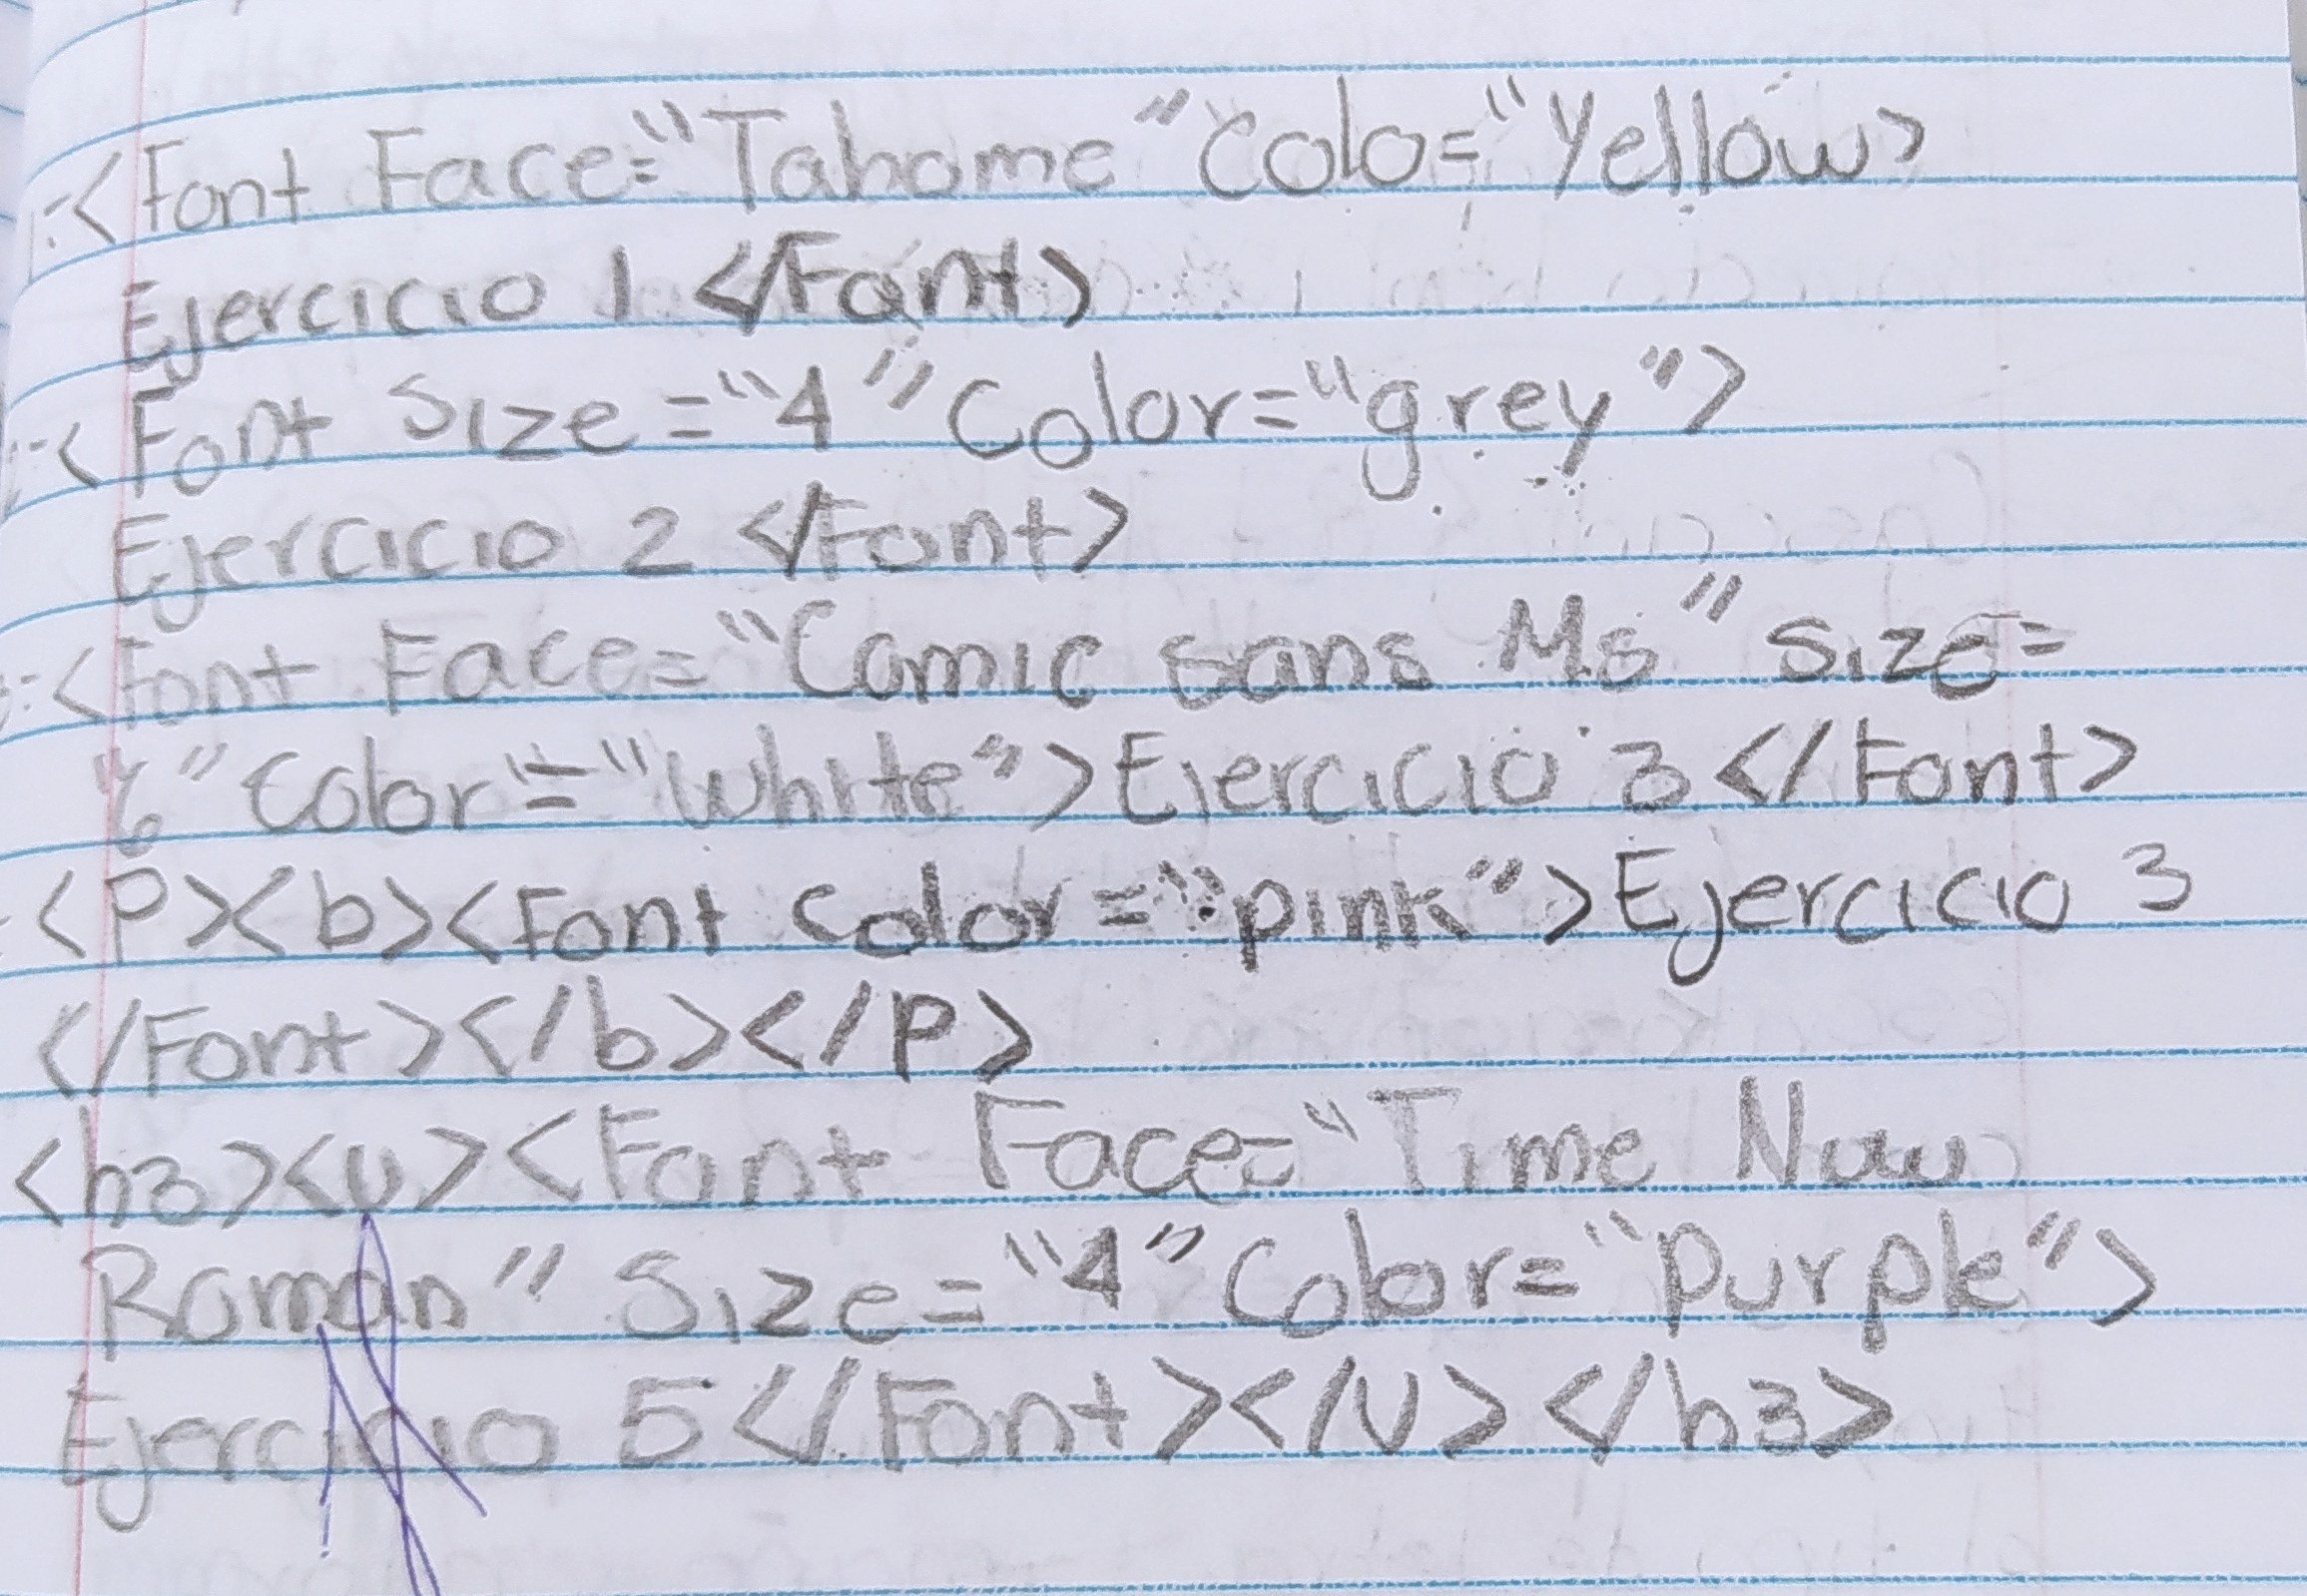 :<Font Face="Tahome" Colo="Yellow>
Ejercicio 1 </Font>
:<Font Size="4" Color="grey">
Ejercicio 2 </Font>
:<Font Face="Comic sans Ms" Size=
"6" Color="White">Ejercicio 3</Font>
<P><b><Font Color="pink">Ejercicio 3
</Font></b></P>
<h3><U><Font Face="Time Nuw
Roman" Size="4" Color="purple">
Ejercicio 5</Font></U></h3>